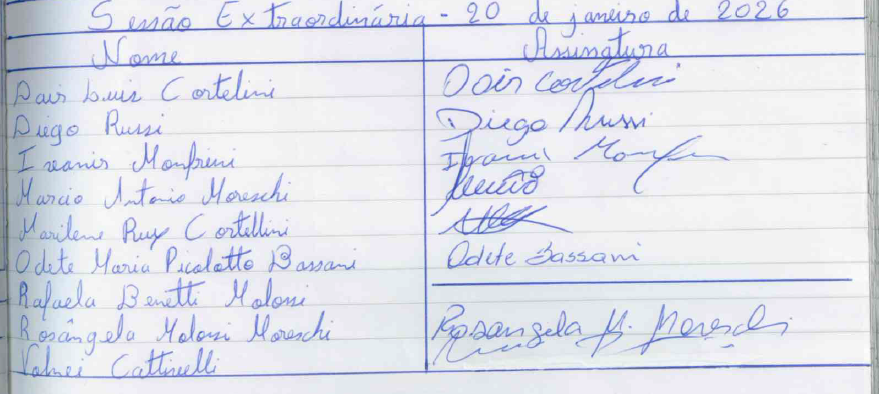 Sessão Extraordinária - 20 de janeiro de 2026
Nome Assinatura
Dair Luis Cortelini Dair Cortelini
Diego Russi Diego Russi
Ivanir Monfrini Ivanir
Marcio Antonio Moreschi
Marilene Ruy Cortellini
Odete Maria Picolotto Bassani Odete Bassani
Rafaela Benetti Molossi
Rosângela Molossi Moreschi Rosangela M. Moreschi
Valnei Cattinelli